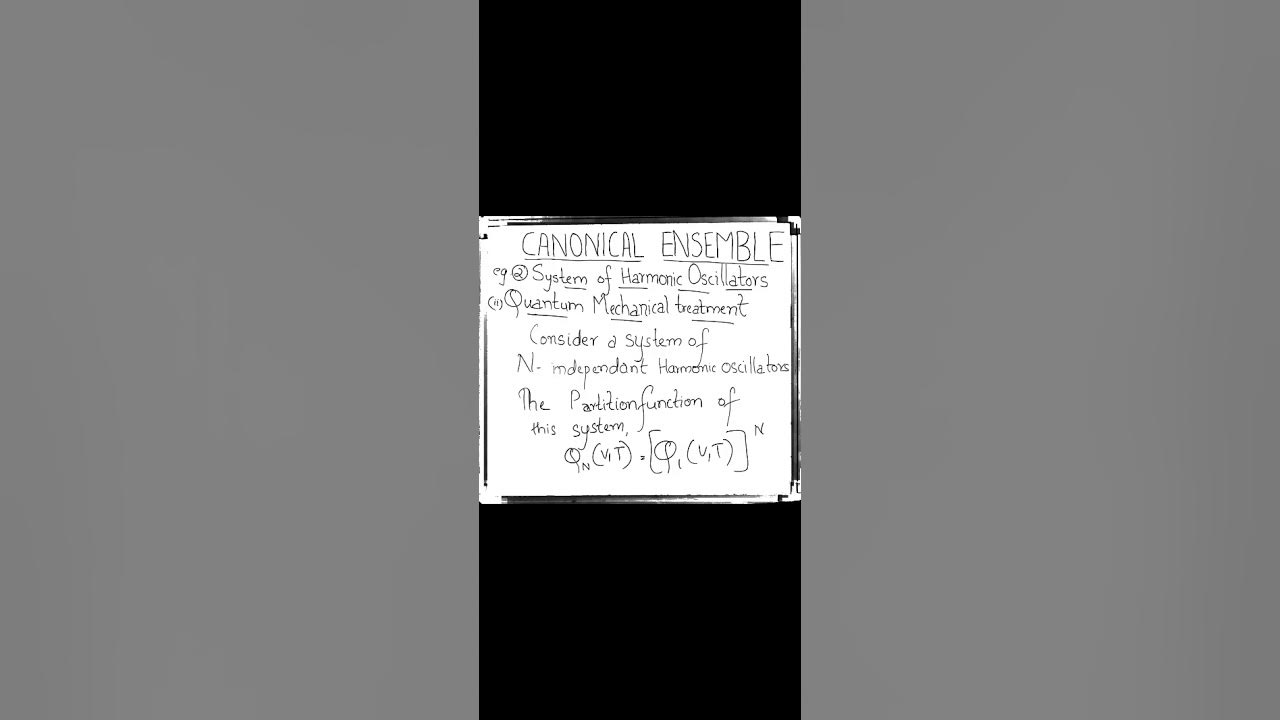 CANONICAL ENSEMBLE
eg ② System of Harmonic Oscillators
(ii) Quantum Mechanical treatment
Consider a system of
N- independant Harmonic oscillators
The Partitionfunction of
this system,
Q_N (V,T) = [Q_1 (V,T)]^N